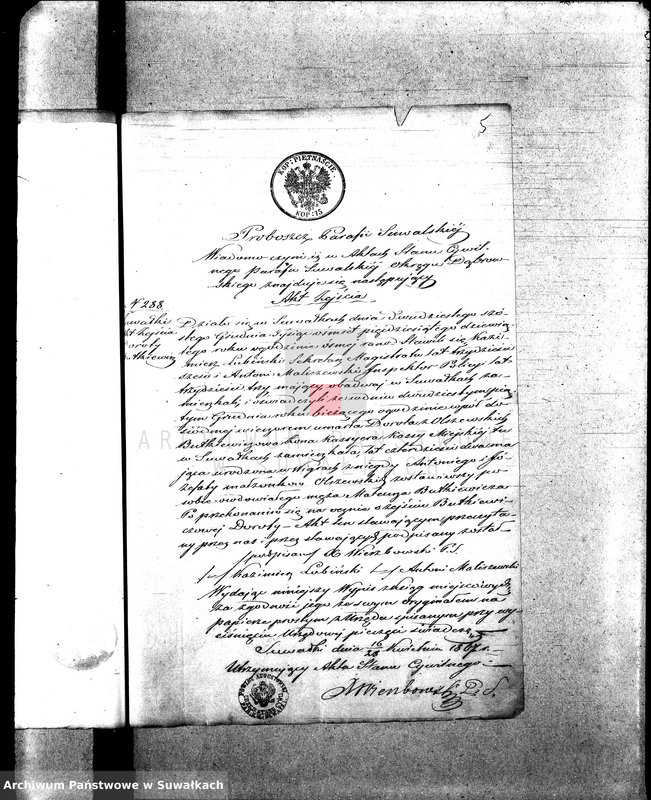 5
KOP: PIĘTNAŚCIE.
KOP: 15
Proboszcz Parafii Suwalskiéj
Wiadomo czyni iż w Aktach Stanu Cywil-
nego parafii Suwalskiéj Okręgu Dąbrow-
skiego znajduje się następujący
Akt Zejścia
N 288
Suwałki
Akt Zejścia
Doroty
Butkiewicz
Działo się w Suwałkach dnia Dwudziestego szó-
stego Grudnia tysiąc ośmset pięćdziesiątego dziewią
tego roku o godzinie ósmej rano Stawili się Kazi-
mierz Lubiński Sekretarz Magistratu lat trzydzieści
sześć i Antoni Maliszewski Inspektor Policyi lat
trzydzieści trzy mający obadwaj w Suwałkach za-
mieszkali i oświadczyli że w dniu dwudziestym pią-
tym Grudnia roku bieżącego o godzinie wpół do
siódmej wieczorem umarła Dorota z Olszewskich
Butkiewiczowa żona Kassyera Kassy Miejskiej tu
w Suwałkach zamieszkała, lat czterdzieści dwa ma
jąca urodzona w Wigrach z niegdy Antoniego i Jó-
zefaty małżonków Olszewskich zostawiwszy po
sobie owdowiałego męża Mateusza Butkiewicza
Po przekonaniu się naocznie o zejściu Butkiewi-
czowej Doroty – Akt ten stawającym przeczyta-
ny przez nas i przez stawających podpisany został
/podpisano/ X Wierzbowski P.S.
/–/ Kazimierz Lubiński /–/ Antoni Maliszewski
Wydając niniejszy Wypis z ksiąg miejscowych
za zgodność jego z oryginałem na
papierze prostym z Urzędu spisanym, przy wy-
ciśnięciu Urzędowej pieczęci świadczę
Suwałki dnia 16/28 Kwietnia 1867 r.
Utrzymujący Akta Stanu Cywilnego
X Wierzbowski P. S.
Archiwum Państwowe w Suwałkach